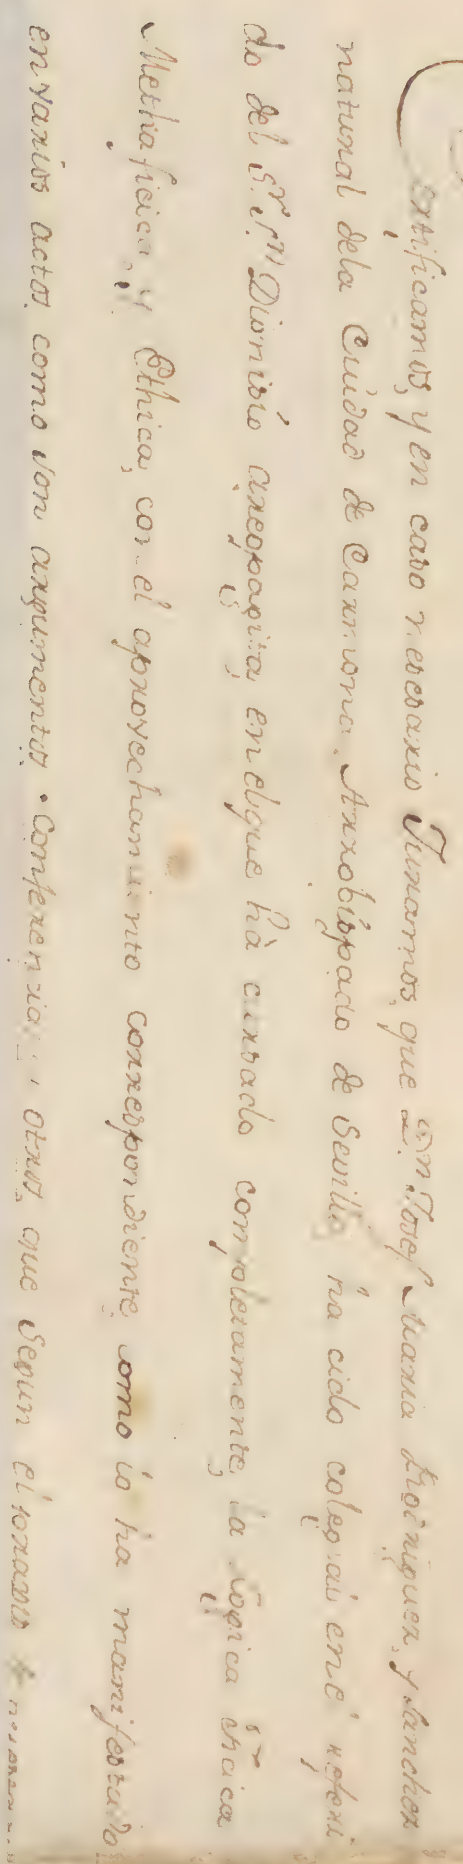 Certificamos, y en caso necesario Juramos, que Dn. Josef Maria Rodriguez, y Sanchez
natural dela Ciudad de Carmona Arzobispado de Sevilla, ha cido colegial en el referi
do del Sr. Sn. Dionisio areopagita, en el que hà cursado completamente, la Logica Fisica
Methaficica, y Ethica, con el aprovechamiento correspondiente, como lo ha manifestado
en varios actos, como son argumentos, Conferencias, y otros, que Segun el horario